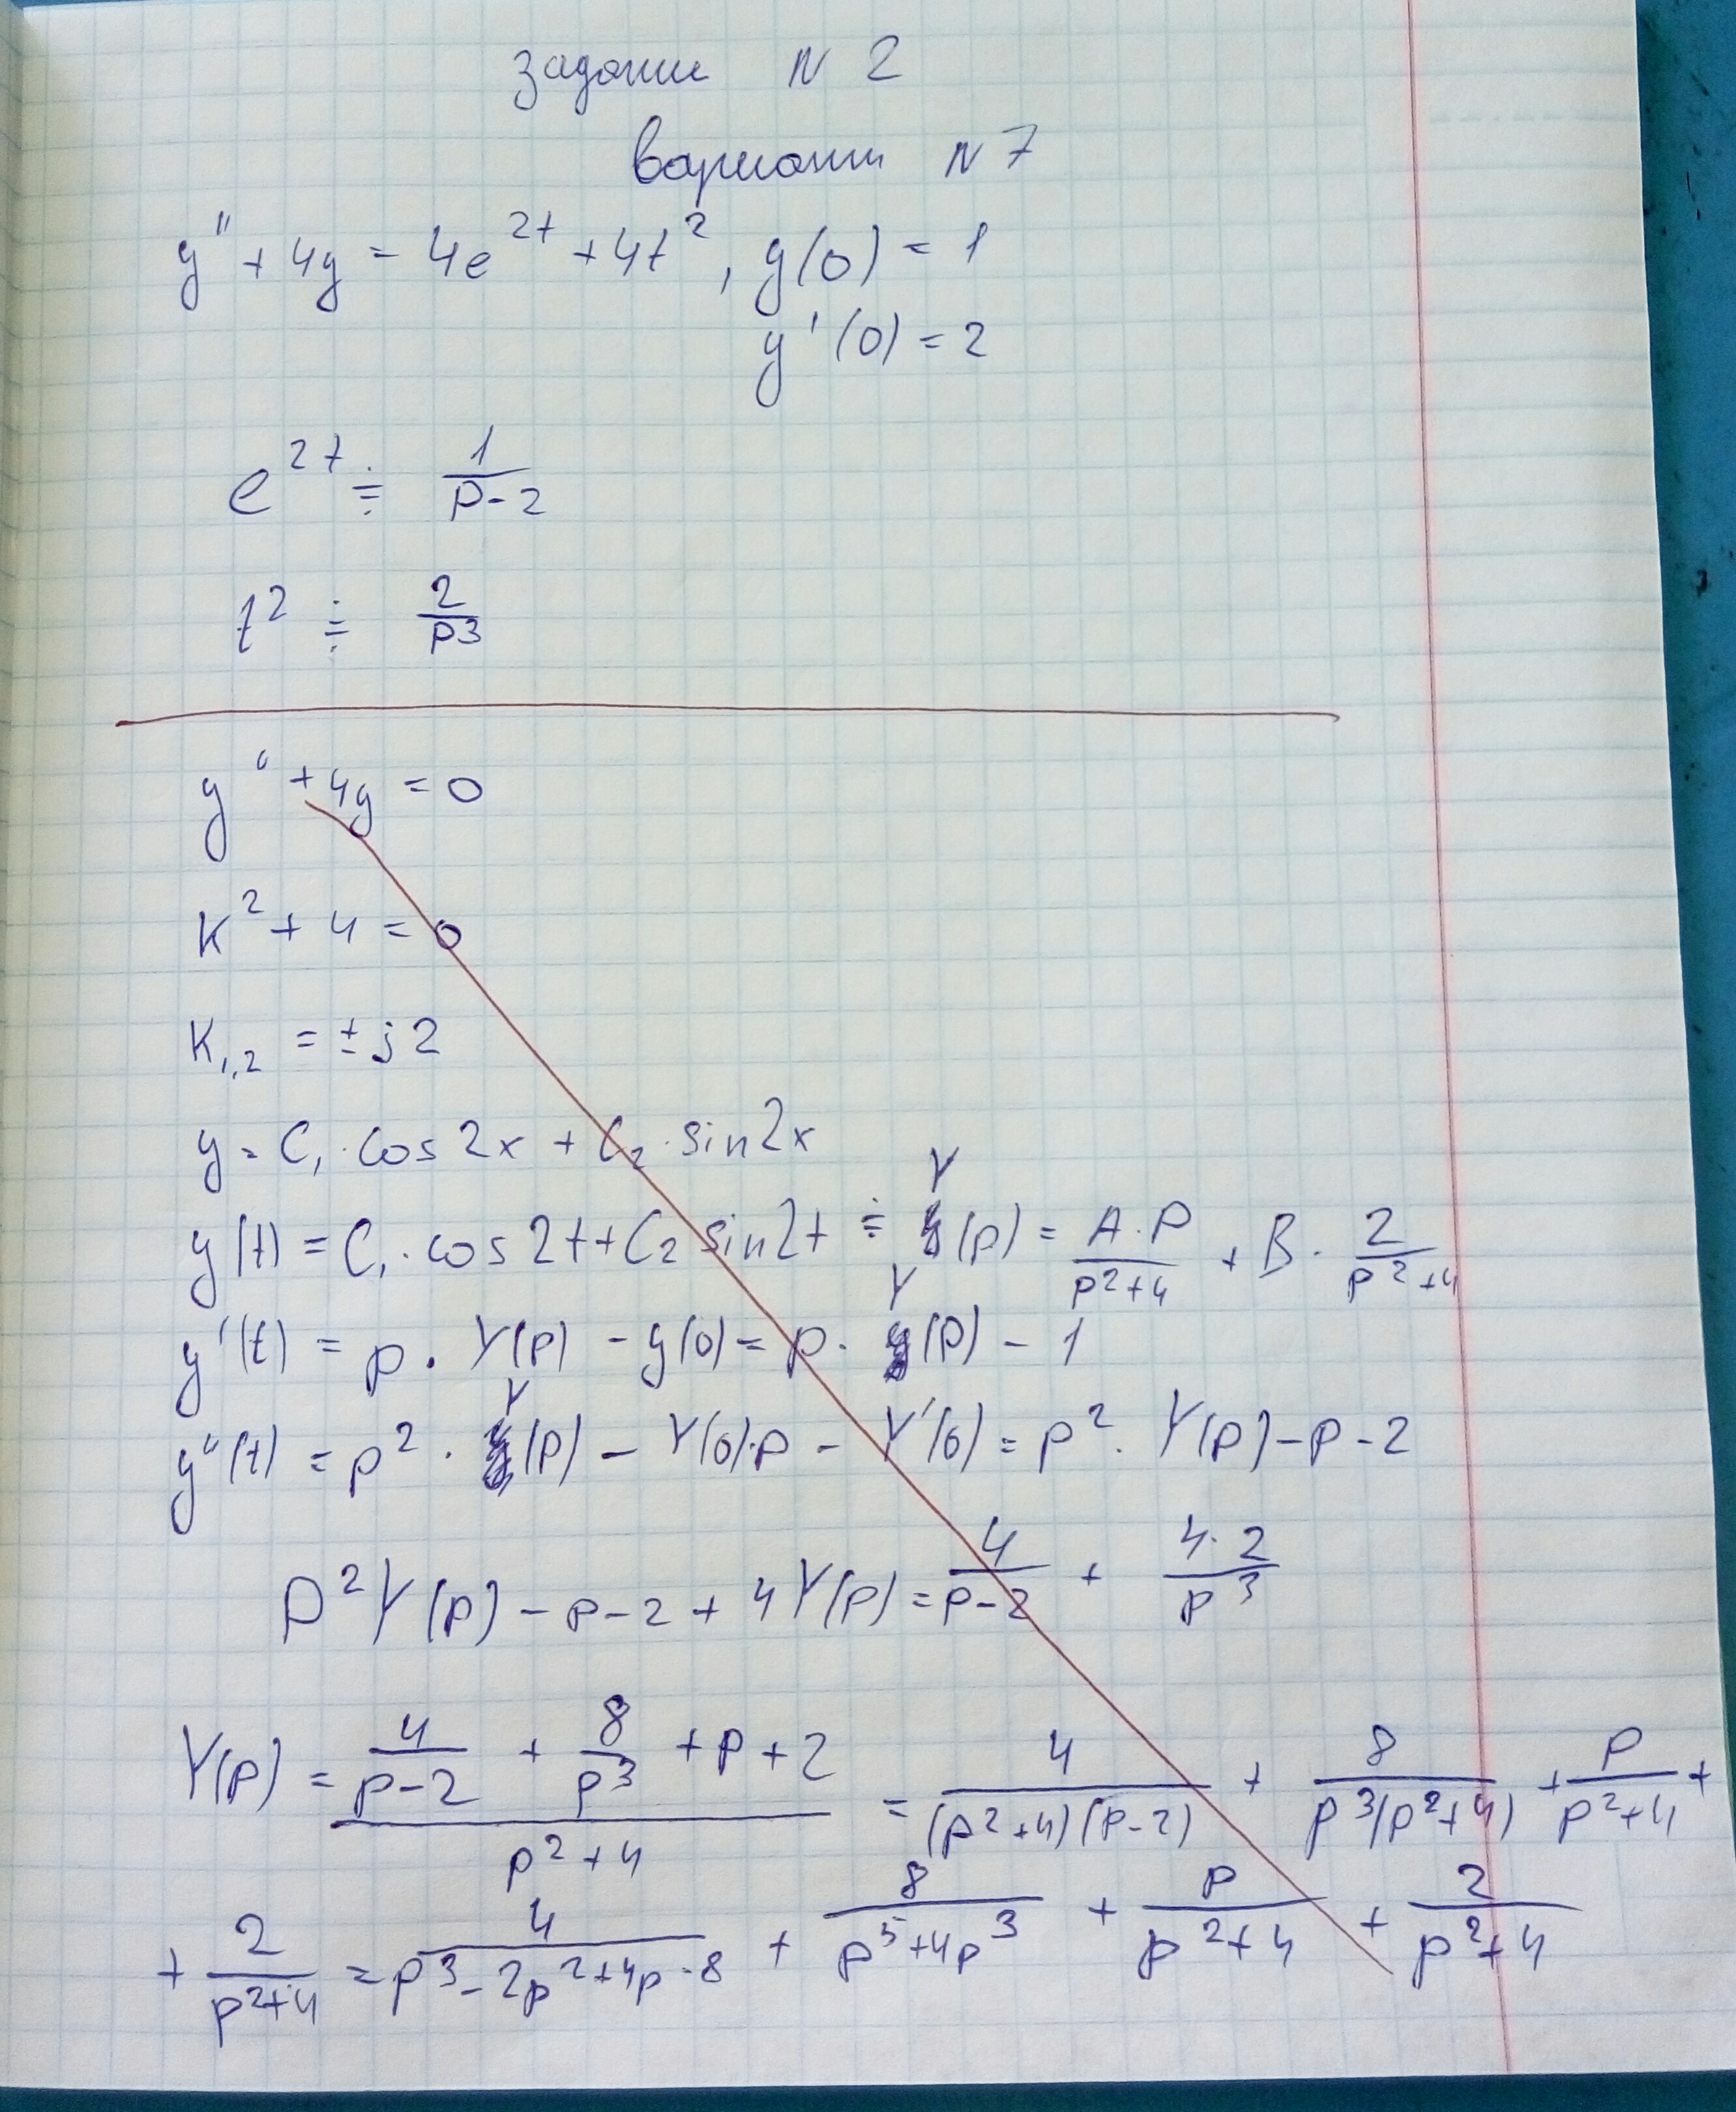 задание N 2
вариант N 7
y'' + 4y = 4e^{2t} + 4t^2, y(0) = 1
y'(0) = 2
e^{2t} ≑ \frac{1}{p-2}
t^2 ≑ \frac{2}{p^3}
y'' + 4y = 0
K^2 + 4 = 0
K_{1,2} = ± j2
y = C_1 · cos 2x + C_2 · sin 2x
y(t) = C_1 · cos 2t + C_2 sin 2t ≑ Y(p) = \frac{A·P}{p^2+4} + B · \frac{2}{p^2+4}
y'(t) = p · Y(p) - y(0) = p · Y(p) - 1
y''(t) = p^2 · Y(p) - Y(0)·p - Y'(0) = p^2 · Y(p) - p - 2
p^2 Y(p) - p - 2 + 4Y(p) = \frac{4}{p-2} + \frac{4·2}{p^3}
Y(p) = \frac{\frac{4}{p-2} + \frac{8}{p^3} + p + 2}{p^2+4} = \frac{4}{(p^2+4)(p-2)} + \frac{8}{p^3(p^2+4)} + \frac{p}{p^2+4} +
+ \frac{2}{p^2+4} = \frac{4}{p^3-2p^2+4p-8} + \frac{8}{p^5+4p^3} + \frac{p}{p^2+4} + \frac{2}{p^2+4}